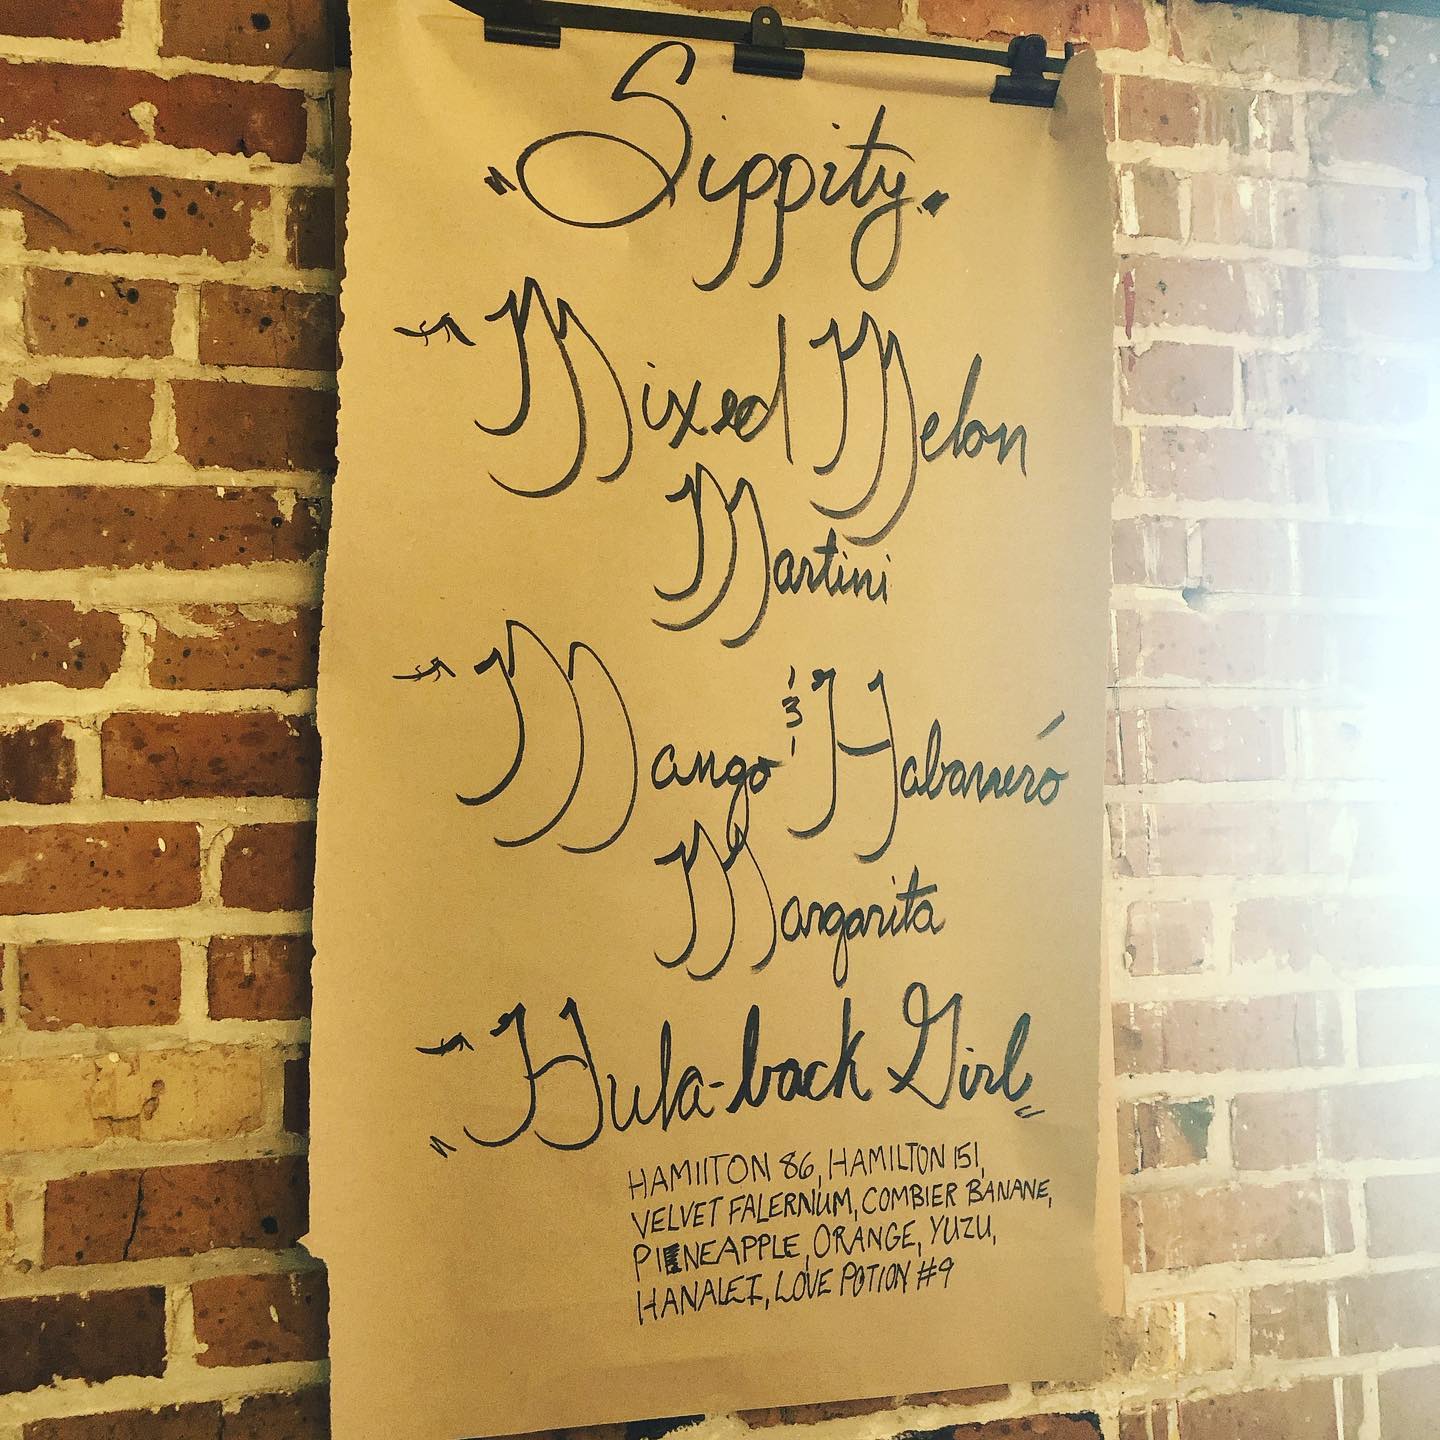 "Sippity"
~ Mixed Melon
Martini
~ Mango & Habaneró
Margarita
~ "Hula-back Girl"
HAMIITON 86, HAMILTON 151,
VELVET FALERNUM, COMBIER BANANE,
PINEAPPLE, ORANGE, YUZU,
HANALEI, LOVE POTION #9